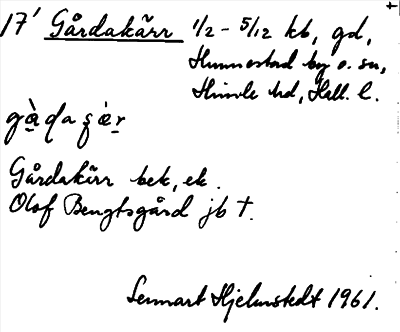 17' Gårdakärr 1/2 - 5/12 kb, gd,
Hunnestad by o. sn,
Himle hd, Hall. l.
Gårdakärr bek, ek.
Olof Bengtsgård jb †.
Lennart Hjelmstedt 1961.